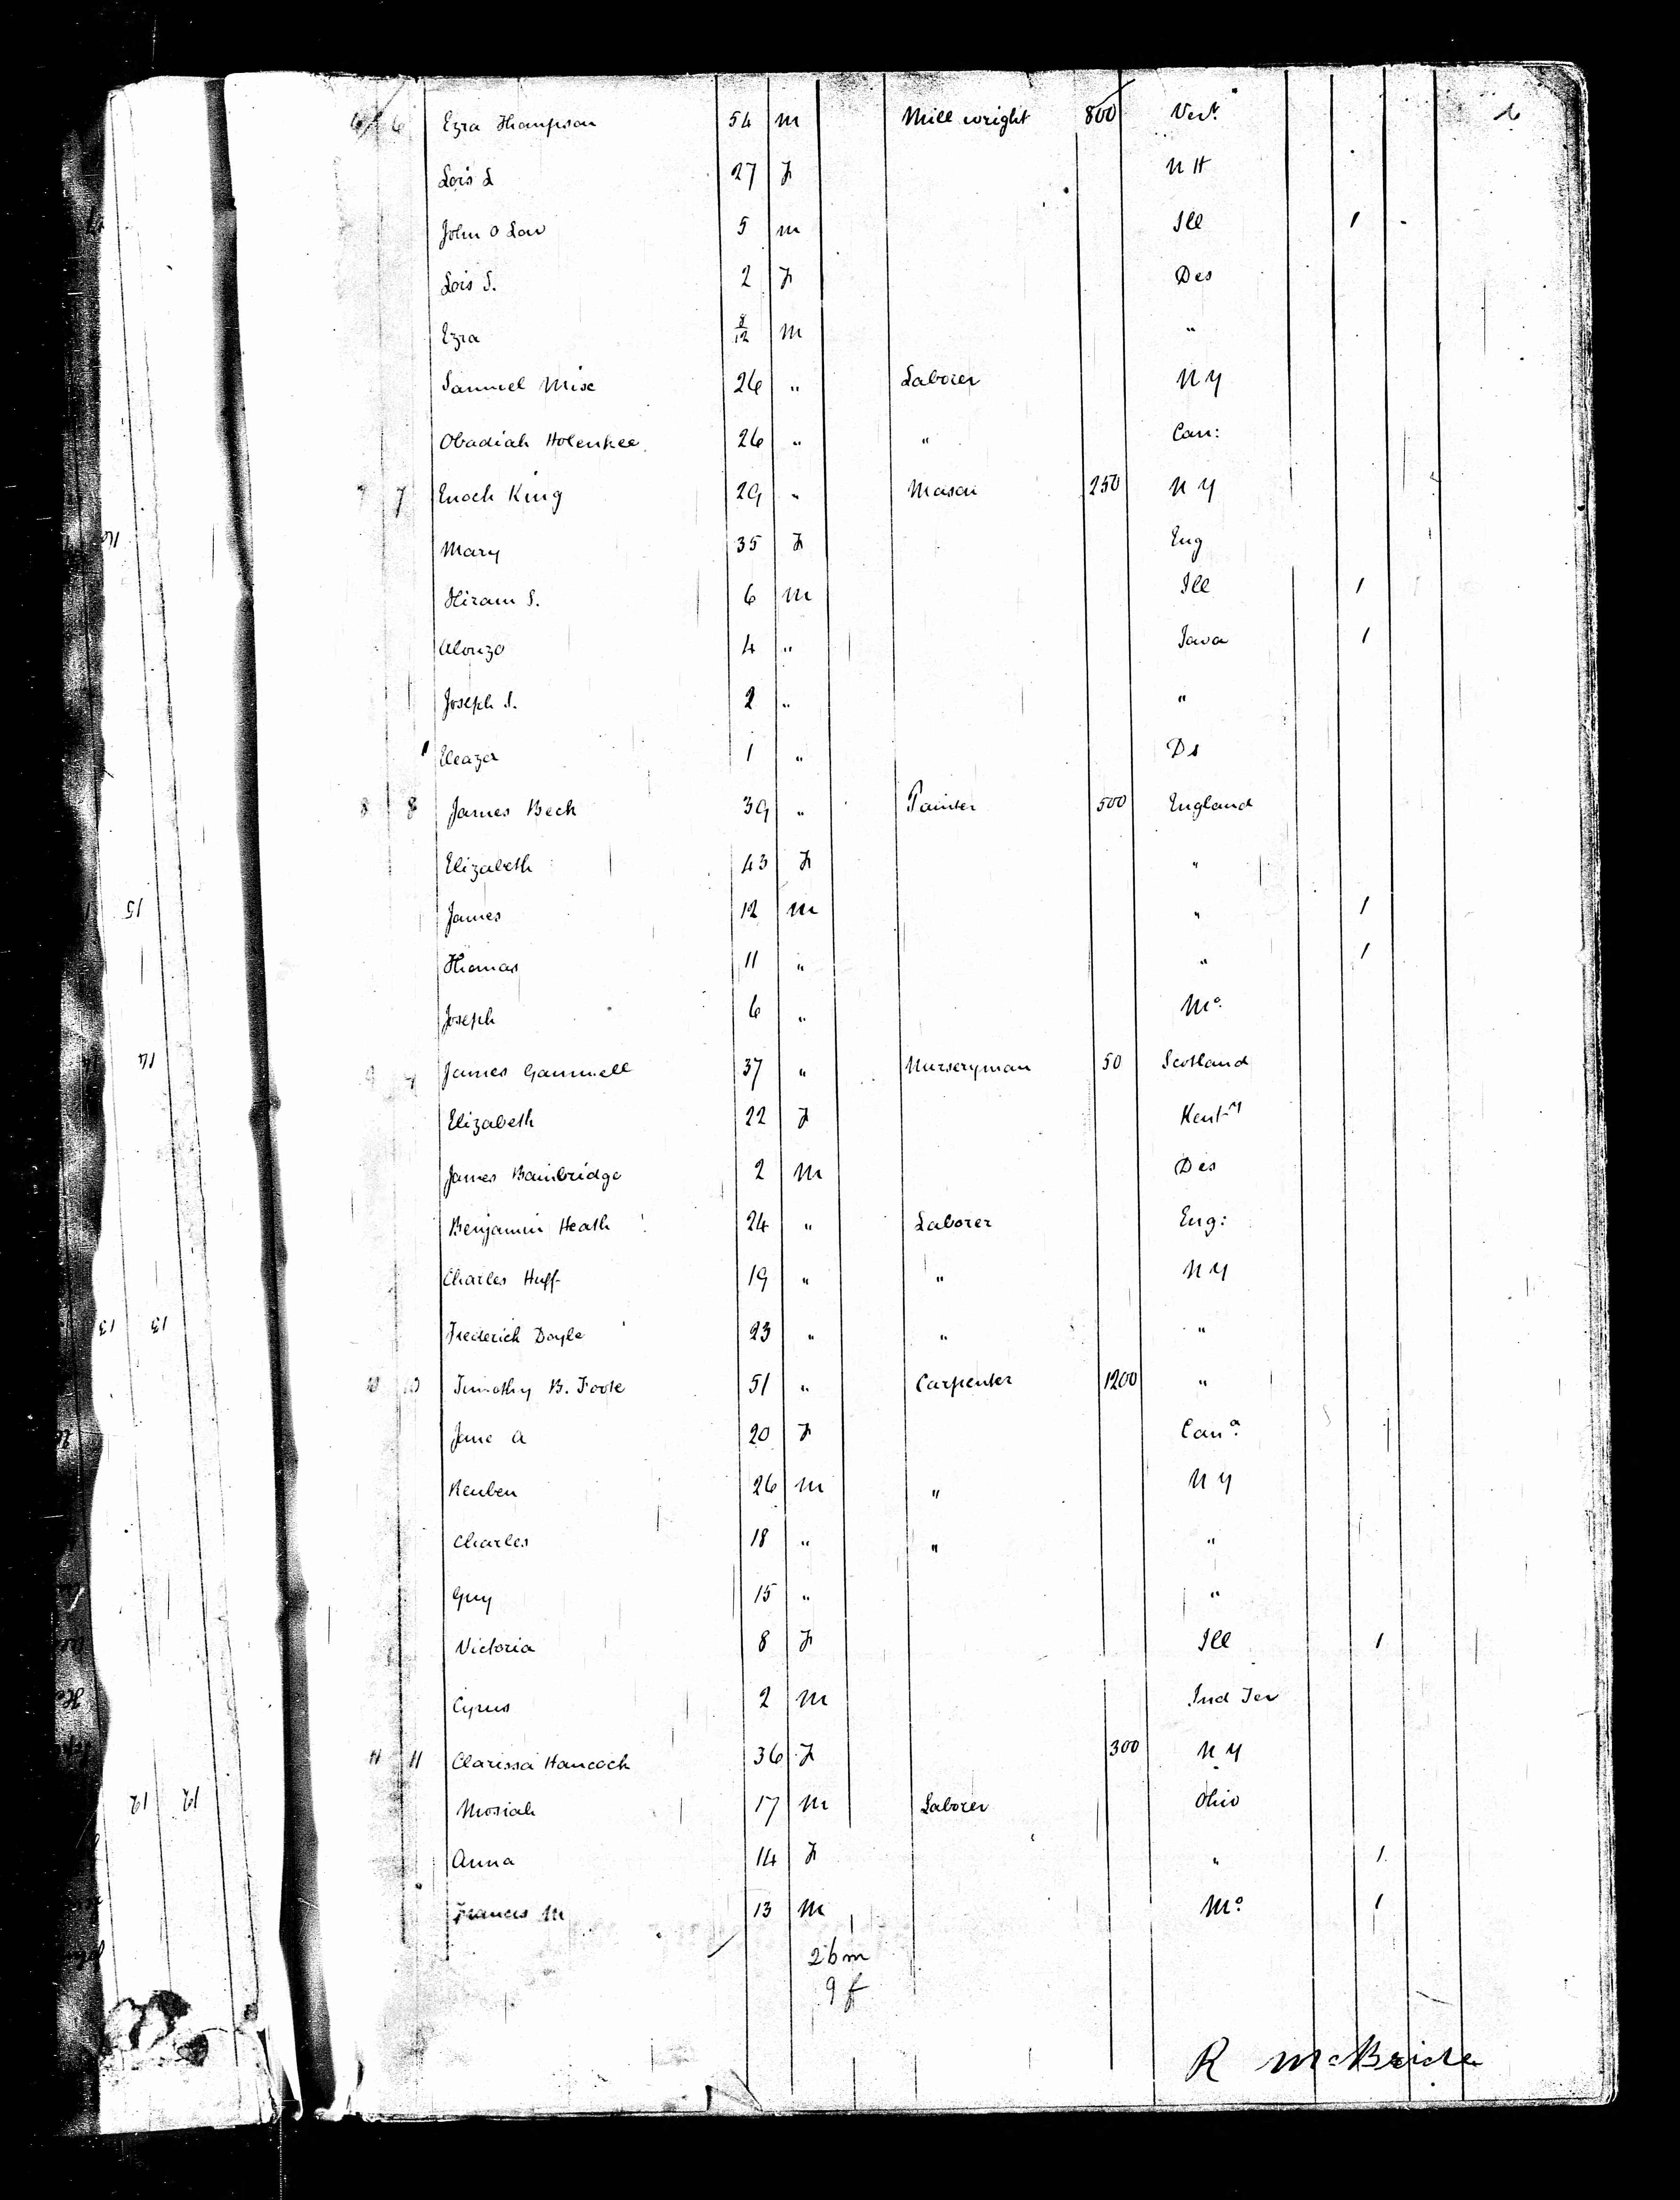 6 6 Ezra Thompson 54 m Mill wright 800 Ver.t
Lois L 27 F N H
John O Low 5 m Ill 1
Lois S. 2 F Des
Ezra 8/12 m "
Samuel Mise 26 " Laborer N Y
Obadiah 26 " " Can:
7 7 Enoch King 29 " Mason 250 N Y
Mary 35 F Eng
Hiram S. 6 m Ill 1
Alonzo 4 " Iowa 1
Joseph S. 2 " "
Eleazer 1 " Ds
8 8 James Beck 39 " Painter 500 England
Elizabeth 43 F "
James 12 m " 1
Thomas 11 " " 1
Joseph 6 " Mo.
9 9 James Gammell 37 " Nurseryman 50 Scotland
Elizabeth 22 F Kent-y
James Bainbridge 2 m Des
Benjamin Heath 24 " Laborer Eng:
Charles Huff 19 " " N Y
Frederick Doyle 23 " " "
10 10 Timothy B. Foote 51 " Carpenter 1200 "
Jane A 20 F Cana.
Reuben 26 m " N Y
Charles 18 " " "
Guy 15 " "
Victoria 8 F Ill 1
Cyrus 2 m Ind Ter
11 11 Clarissa Hancock 36 F 300 N Y
Mosiah 17 m Laborer Ohio
Anna 14 F " 1
Francis M 13 m Mo. 1
26 m
9 f
R McBride
15
14
13 13
12 12